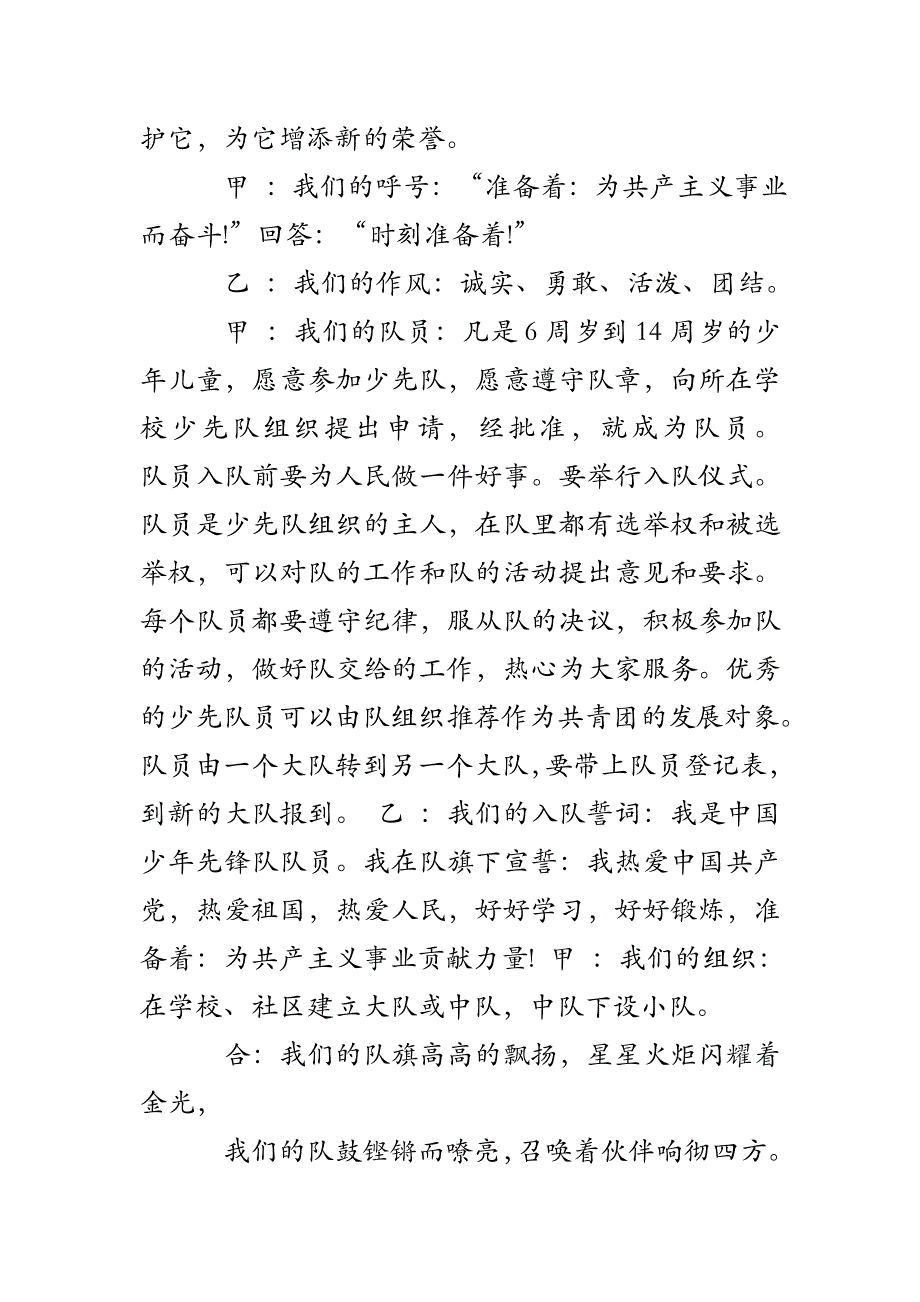 护它，为它增添新的荣誉。
甲 ：我们的呼号：“准备着：为共产主义事业
而奋斗!”回答：“时刻准备着!”
乙 ：我们的作风：诚实、勇敢、活泼、团结。
甲 ：我们的队员：凡是 6 周岁到 14 周岁的少
年儿童，愿意参加少先队，愿意遵守队章，向所在学
校少先队组织提出申请，经批准，就成为队员。
队员入队前要为人民做一件好事。要举行入队仪式。
队员是少先队组织的主人，在队里都有选举权和被选
举权，可以对队的工作和队的活动提出意见和要求。
每个队员都要遵守纪律，服从队的决议，积极参加队
的活动，做好队交给的工作，热心为大家服务。优秀
的少先队员可以由队组织推荐作为共青团的发展对象。
队员由一个大队转到另一个大队，要带上队员登记表，
到新的大队报到。 乙 ：我们的入队誓词：我是中国
少年先锋队队员。我在队旗下宣誓：我热爱中国共产
党，热爱祖国，热爱人民，好好学习，好好锻炼，准
备着：为共产主义事业贡献力量! 甲 ：我们的组织：
在学校、社区建立大队或中队，中队下设小队。
合：我们的队旗高高的飘扬，星星火炬闪耀着
金光，
我们的队鼓铿锵而嘹亮，召唤着伙伴响彻四方。